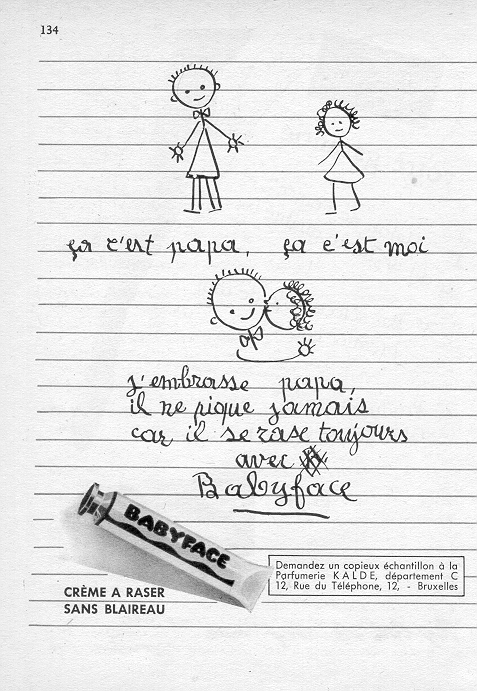 134
ça c'est papa, ça c'est moi
j'embrasse papa,
il ne pique jamais
car il se rase toujours
avec
Babyface
BABYFACE
CRÈME A RASER
SANS BLAIREAU
Demandez un copieux échantillon à la
Parfumerie KALDE, département C
12, Rue du Téléphone, 12, - Bruxelles